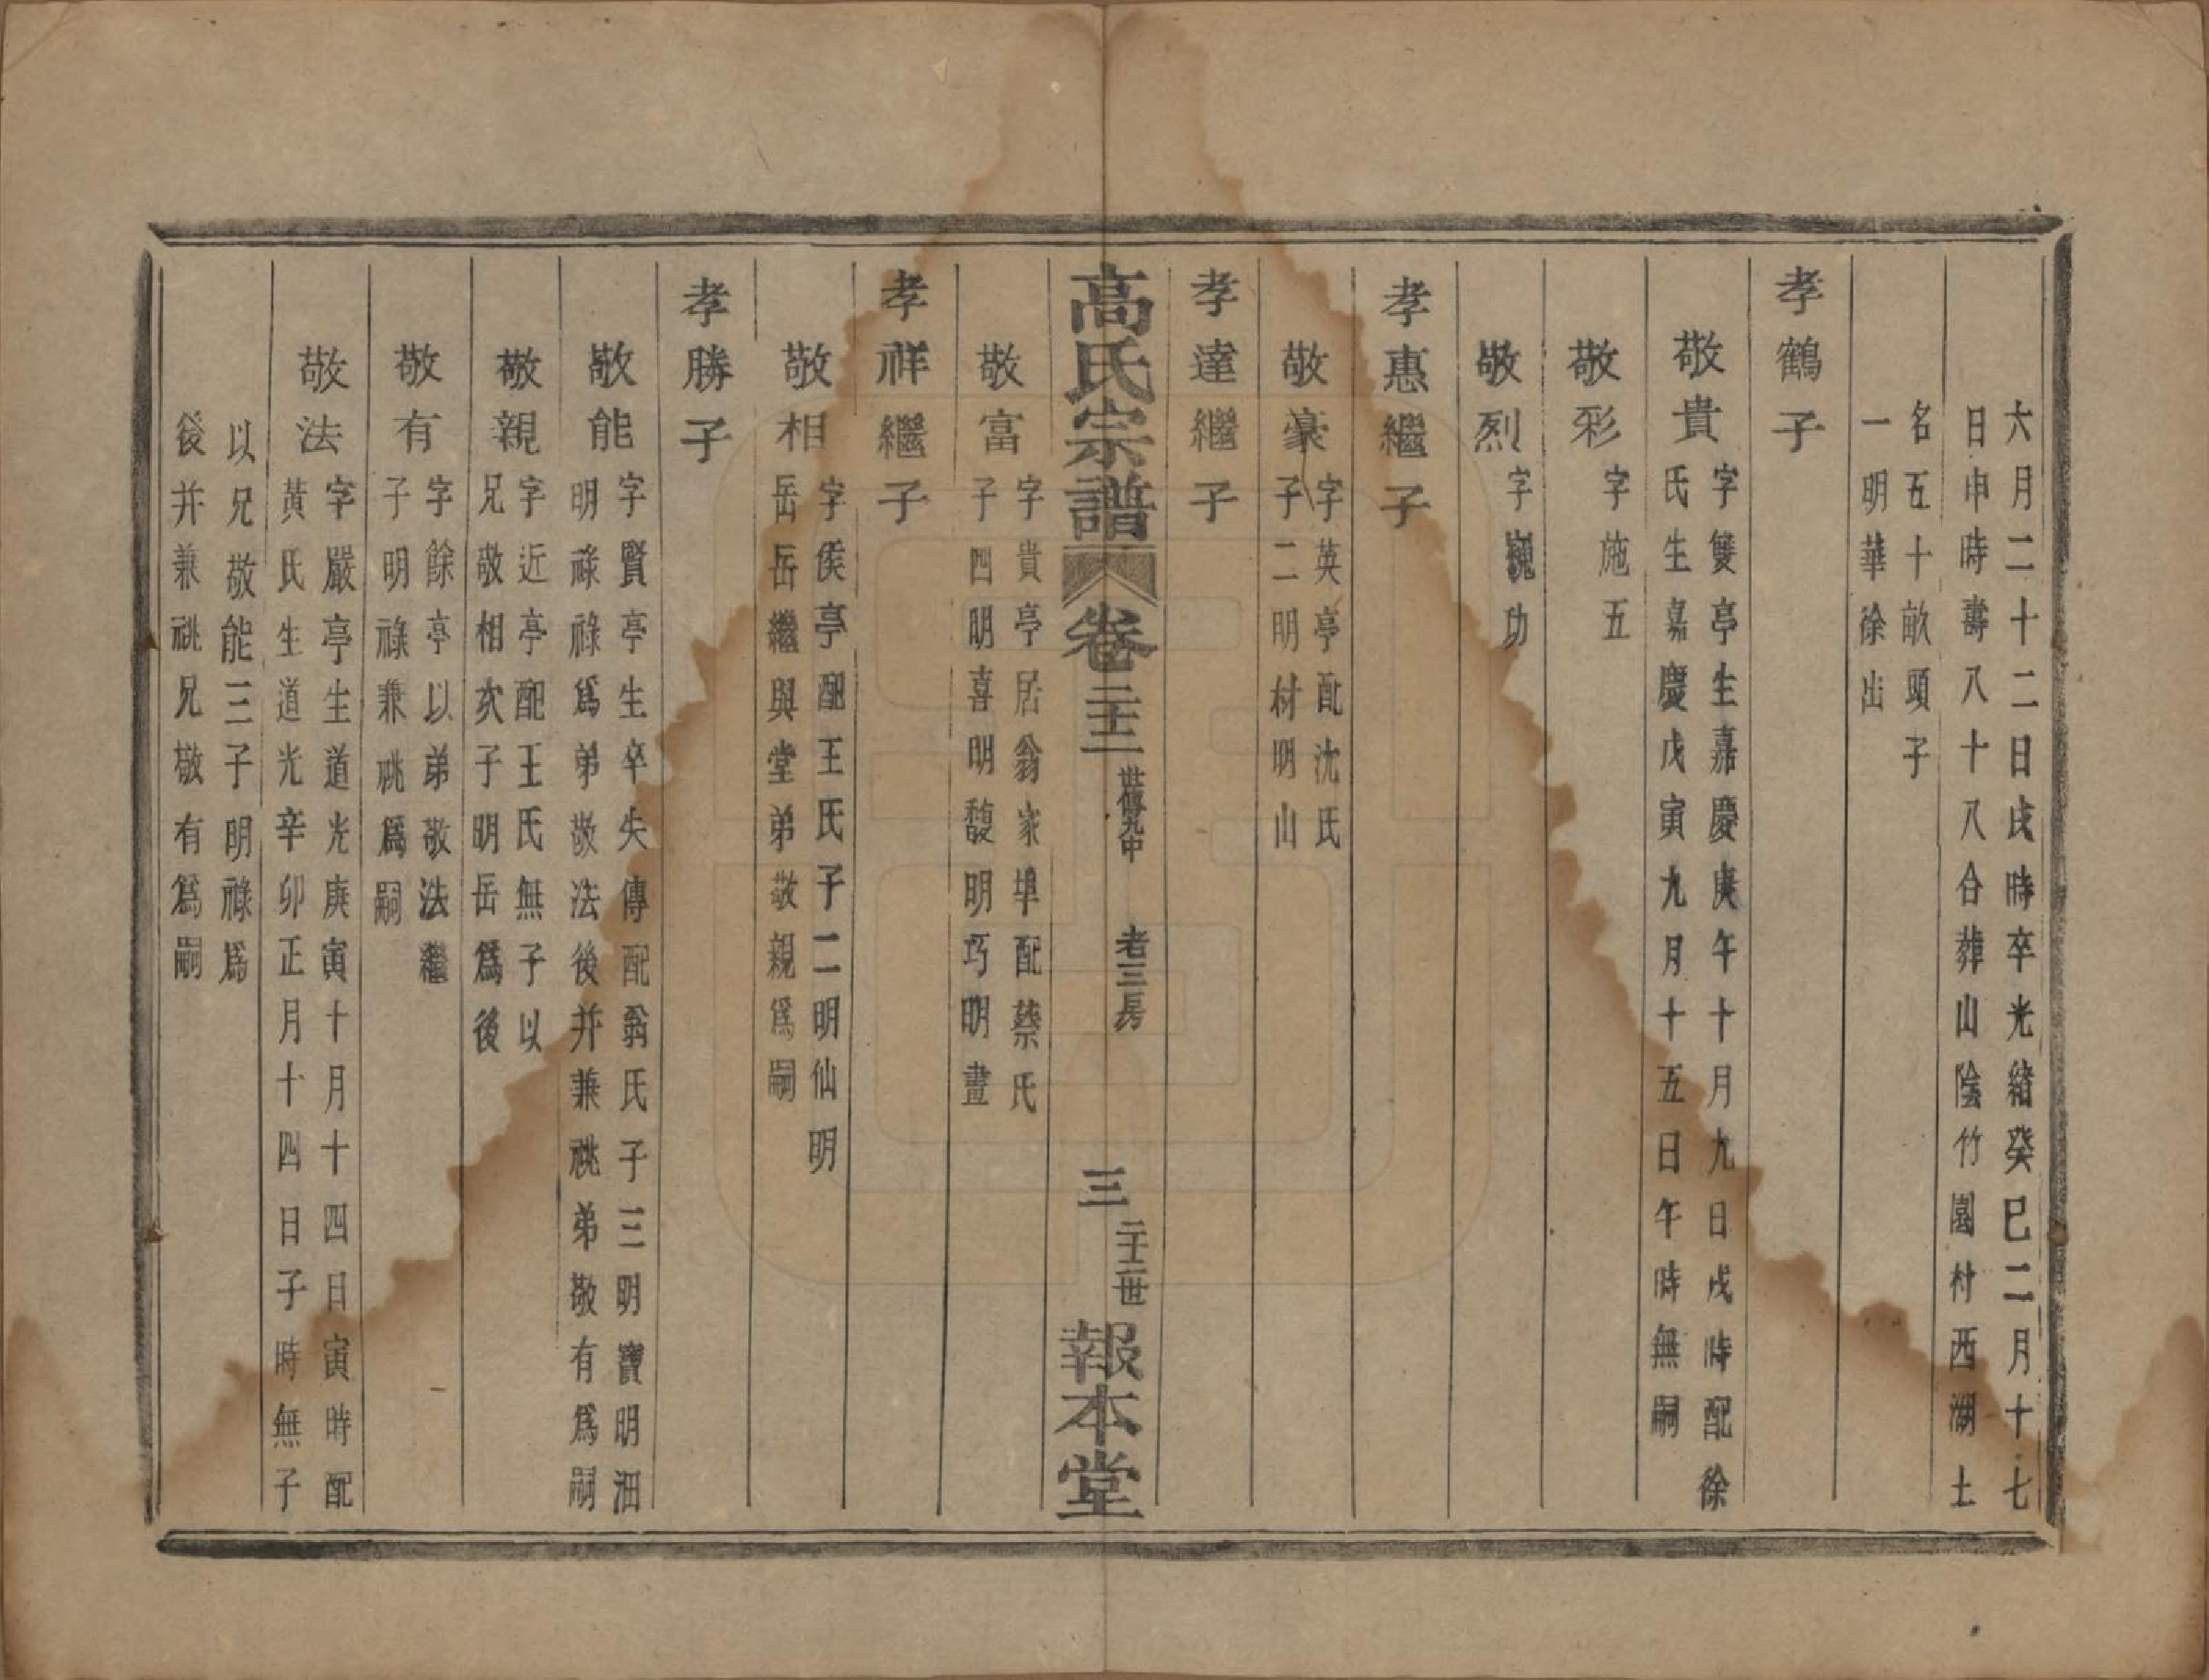 六月二十二日戌時卒光緒癸巳二月十七
日申時壽八十八合葬山陰竹園村西湖土
名五十畝頭子
一明華徐出
孝鶴子
敬貴
字雙亭生嘉慶庚午十月九日戌時配徐
氏生嘉慶戊寅九月十五日午時無嗣
敬彩
字施五
敬烈
字巍功
孝惠繼子
敬豪
字英亭配沈氏
子二明材明山
孝達繼子
高氏宗譜 卷二十二 世傳九中 老三房 三 二十二世 報本堂
敬富
字貴亭居翁家埠配蔡氏
子四明喜明馥明巧明畫
孝祥繼子
敬相
字侯亭配王氏子二明仙明
岳岳繼與堂弟敬親爲嗣
孝勝子
敬能
字賢亭生卒失傳配翁氏子三明寶明洄
明祿祿爲弟敬法後并兼祧弟敬有爲嗣
敬親
字近亭配王氏無子以
兄敬相次子明岳爲後
敬有
字餘亭以弟敬法繼
子明祿兼祧爲嗣
敬法
字嚴亭生道光庚寅十月十四日寅時配
黃氏生道光辛卯正月十四日子時無子
以兄敬能三子明祿爲
後并兼祧兄敬有爲嗣